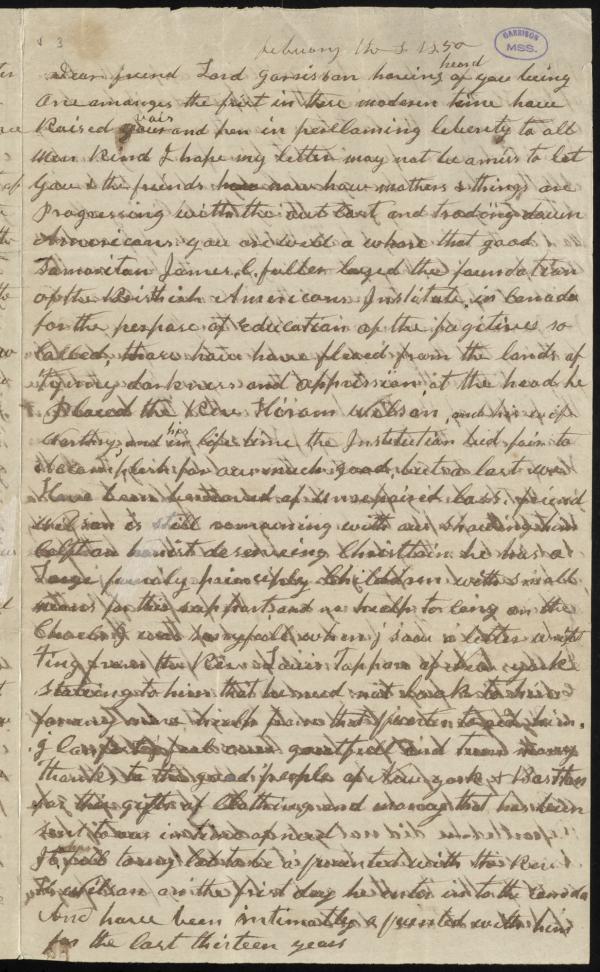 3
February 1850
GARRISON MSS.
Dear friend Lord Garisison having heard of you being
one amanges the first in these modern time have
Raised your vais and pen in perllaming leberity to all
Man Kind I hope my letter may not be amis to let
you & the friends how mothers & things are
Progressing with the out cast and trodoing down
Americans you are well a whare that good
Samaritan James C fuller layed the foundation
of the Birtish Americans Institute in Canada
for the perpose of Education of the fugitives so
called, thare have fleaed from the lands of
tyriny darkness and oppression, at the head he
Placed the Rev Hiram Wilson, and his wife
worthy, and in his life time the Institution bid fair to
for our much good, but a last we
Have been of loss. friend
Wilson is still remaining with us
an honist deserveing Christian he has a
Large family principly Children with small
means for thir support and no help to long on the
I was sorry full when I saw a letter writ
Ting from the Rev Tappan of New york
stateing to him that he need not look to him
for any more help from that quarter to aid him.
I feel over greatfull and turn many
thanks to the good people of New york & Boston
for thir gifts of Clothing and money that has been
sent to us in time of need
to be a quainted with the Rev
H Wilson on the first day he enter in to the Canada
And have been intimatly a quainted with him
for the last thirteen years